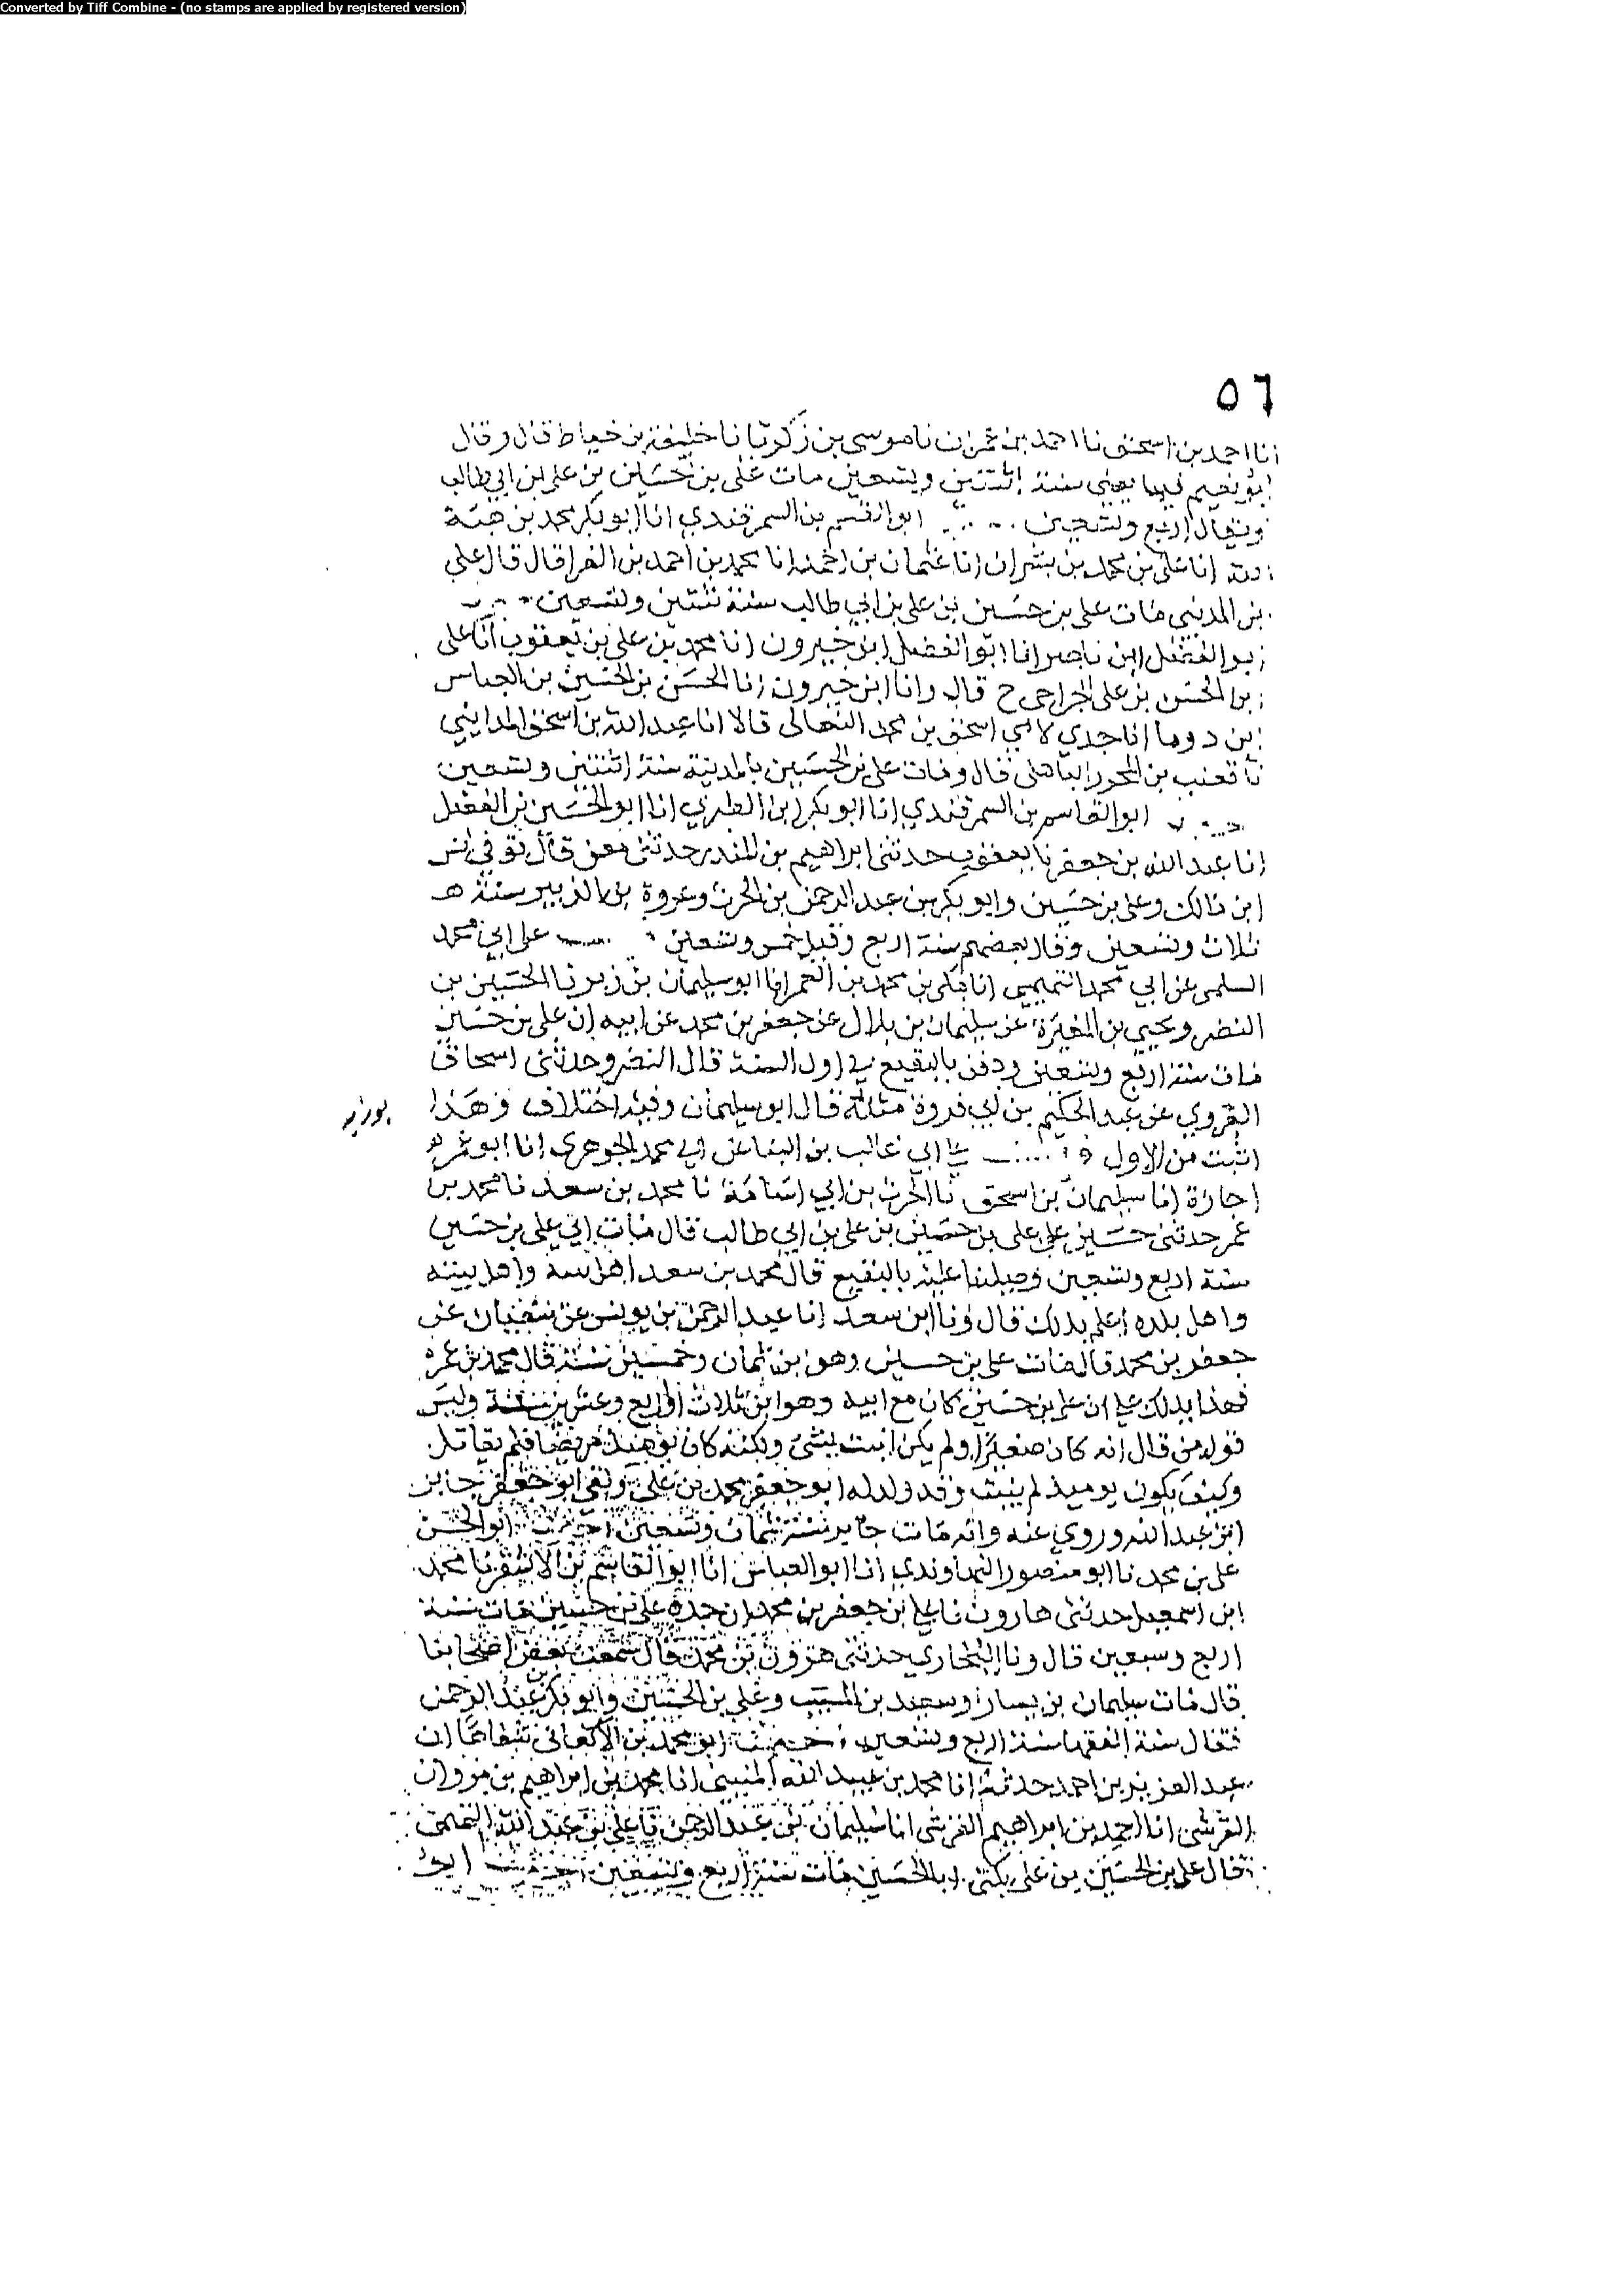 Converted by Tiff Combine - (no stamps are applied by registered version)
٥٦
انا احمد بن اسحق نا احمد بن عمران نا موسى بن زكريا نا خليفة بن خياط قال وقال
ابو نعيم فيها يعني سنة اثنتين وتسعين مات علي بن حسين بن علي بن ابي طالب
ويقال اربع وتسعين ابو القسم بن السمرقندي انا ابو بكر محمد بن هبة
الله انا علي بن محمد بن بشران انا عثمان بن احمد انا محمد بن احمد بن البرا قال قال علي
بن المديني مات علي بن حسين بن علي بن ابي طالب سنة ثنتين وتسعين
ابو الفضل ابن ناصر انا ابو الفضل ابن خيرون انا محمد بن علي بن يعقوب انا علي
بن الحسن بن علي الجراحي ح قال وانا ابن خيرون انا الحسن بن الحسين بن العباس
ابن دوما انا جدي لامي اسحق بن محمد النعالى قالا انا عبد الله بن اسحق المدايني
نا قعنب بن المحرر الباهلى قال ومات علي بن الحسين بالمدينة سنة اثنتين وتسعين
ابو القاسم بن السمرقندي انا ابو بكر ابن الطبري انا ابو الحسين بن الفضل
انا عبد الله بن جعفر نا يعقوب حدثنى ابراهيم بن المنذر حدثنى معن قال توفي انس
ابن مالك وعلي بن حسين وابو بكر بن عبد الرحمن بن الحرث وعروة بن الزبير سنة
ثلاث وتسعين وقال بعضهم سنة اربع وقيل خمس وتسعين على ابي محمد
السلمى عن ابي محمد التميمي انا مكي بن محمد بن الغمر انا ابو سليمان بن زبر نا الحسين بن
النضر ويحيى بن المغيرة عن سليمان بن بلال عن جعفر بن محمد عن ابيه ان علي بن حسين
مات سنة اربع وتسعين ودفن بالبقيع في اول السنة قال النضر وحدثنى اسحاق
الفروي عن عبد الحكيم بن ابي فروة مثله قال ابو سليمان وفيه اختلاف وهذا
اثبت من الاول ابي غالب بن البنا عن ابي محمد الجوهرى انا ابو عمر
اجازة انا سليمان بن اسحق نا الحرث بن ابي اسامة نا محمد بن سعد نا محمد بن
عمر حدثنى حسين بن علي بن حسين بن علي بن ابي طالب قال مات ابي علي بن حسين
سنة اربع وتسعين وصلينا عليه بالبقيع قال محمد بن سعد اهل بيته
واهل بلده اعلم بذلك قال ونا ابن سعد انا عبد الرحمن بن يونس عن سفيان عن
جعفر بن محمد قال مات علي بن حسين وهو ابن ثمان وخمسين سنة قال محمد بن عمر
فهذا يدلك على ان علي بن حسين كان مع ابيه وهو ابن ثلاث او اربع وعشرين سنة وليس
قول من قال انه كان صغيرا ولم يكن انبت بشئ ولكنه كان يومئذ مريضا فلم يقاتل
وكيف يكون يوميذ لم ينبت وقد ولد له ابو جعفر محمد بن علي ولقي ابو جعفر جابر
ابن عبد الله وروي عنه وانه مات جابر سنة ثمان وسبعين ابو الحسن
علي بن محمد نا ابو منصور النهاوندي انا ابو العباس انا ابو القاسم بن الاشقر نا محمد
ابن اسمعيل حدثنى هارون نا علي ابن جعفر بن محمد ان جده علي بن حسين مات سنة
اربع وسبعين قال ونا البخاري حدثنى هرون بن محمد قال سمعت بعض اصحابنا
قال مات سليمان بن يسار وسعيد بن المسيب وعلي بن الحسين وابو بكر بن عبد الرحمن
يقال سنة الفقها سنة اربع وتسعين ابو محمد بن الاكفاني شفاها ان
عبد العزيز بن احمد حدثه انا محمد بن عبيد الله المنيني انا محمد بن ابراهيم بن مروان
القرشى انا احمد بن ابراهيم القرشى انا سليمان بن عبد الرحمن نا علي بن عبد الله التميمى
قال علي بن الحسين بن علي يكنى ابا الحسين مات سنة اربع وتسعين ابو